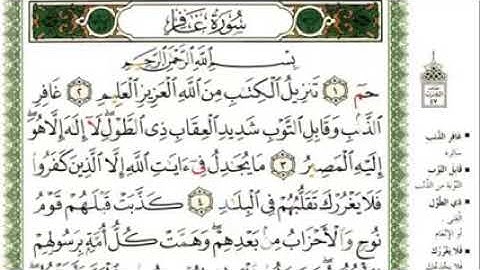 سُورَةُ غَافِر
بِسْمِ ٱللَّهِ ٱلرَّحْمَٰنِ ٱلرَّحِيمِ
حمٓ ١ تَنزِيلُ ٱلْكِتَٰبِ مِنَ ٱللَّهِ ٱلْعَزِيزِ ٱلْعَلِيمِ ٢ غَافِرِ
ٱلذَّنۢبِ وَقَابِلِ ٱلتَّوْبِ شَدِيدِ ٱلْعِقَابِ ذِى ٱلطَّوْلِ ۖ لَآ إِلَٰهَ إِلَّا هُوَ ۖ
إِلَيْهِ ٱلْمَصِيرُ ٣ مَا يُجَٰدِلُ فِىٓ ءَايَٰتِ ٱللَّهِ إِلَّا ٱلَّذِينَ كَفَرُوا۟
فَلَا يَغْرُرْكَ تَقَلُّبُهُمْ فِى ٱلْبِلَٰدِ ٤ كَذَّبَتْ قَبْلَهُمْ قَوْمُ
نُوحٍ وَٱلْأَحْزَابُ مِنۢ بَعْدِهِمْ ۖ وَهَمَّتْ كُلُّ أُمَّةٍۭ بِرَسُولِهِمْ
غافر الذنب
ساتره
قابل التوب
التوبة من الذنب
ذي الطول
فلا يغررك